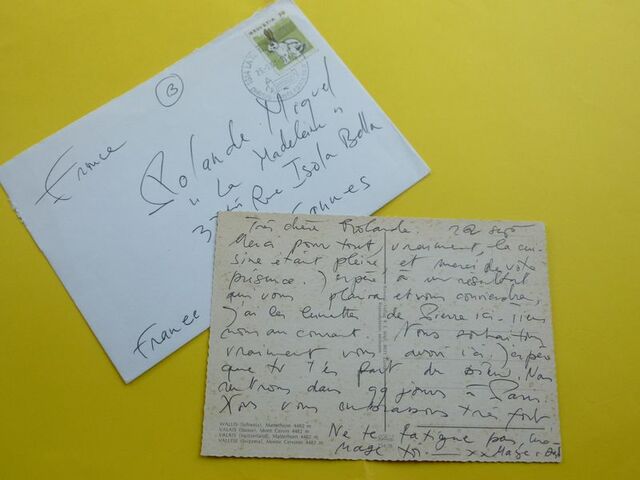 HELVETIA
B
France
Rolande Miquel
"La Madeleine"
Rue Isola Bella
Cannes
France
Très chère Rolande. 22 sept
Merci pour tout vraiment, la cui-
sine était pleine, et merci de votre
présence. J'espère à un résultat
qui vous plaira et vous conviendra,
J'ai les lunettes de Pierre ici - tiens
nous au courant. Nous souhaitons
vraiment vous avoir ici, j'espère
que tu t'es part du bien. Nous
rentrons dans qq jours à Paris.
Nous vous embrassons très fort
Ne te fatigue pas, cou-
rage xxx
WALLIS (Schweiz), Matterhorn 4482 m
VALAIS (Suisse), Mont Cervin 4482 m
VALAIS (Switzerland), Matterhorn 4482 m
VALLESE (Svizzera), Monte Cervino 4482 m